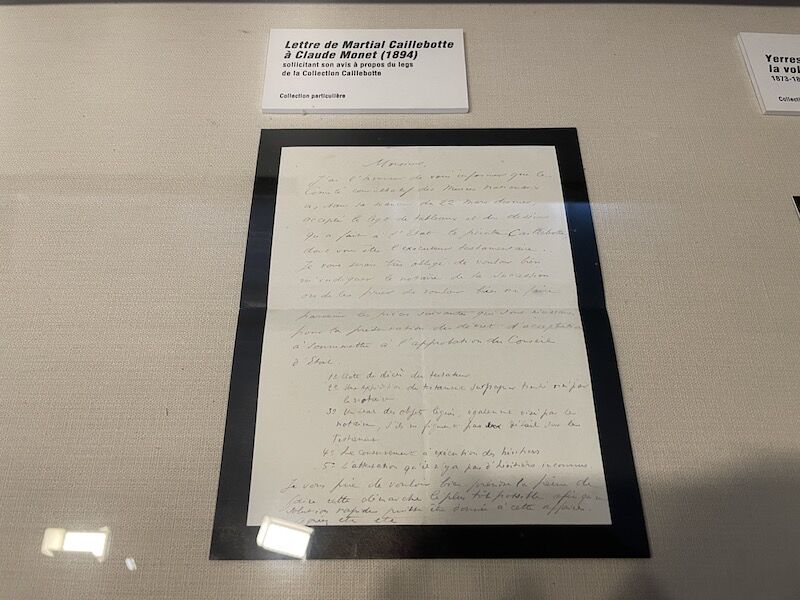 Lettre de Martial Caillebotte
à Claude Monet (1894)
sollicitant son avis à propos du legs
de la Collection Caillebotte
Collection particulière
Yerres
la vo
1873-18
Collecti
Monsieur,
J'ai l'honneur de vous informer que le
Comité consultatif des Musées Nationaux
a, dans sa séance du 22 Mars dernier,
accepté le legs de tableaux et des dessins
qu'a fait à l'Etat le peintre Caillebotte,
dont vous êtes l'exécuteur testamentaire.
Je vous serais très obligé de vouloir bien
m'indiquer le notaire de la succession
ou de le prier de vouloir bien me faire
parvenir les pièces suivantes qui sont nécessaires
pour la préparation du décret d'acceptation
à soumettre à l'approbation du Conseil
d'Etat.
1º Acte de décès du testateur
2º Une expédition du testament sur papier timbré visé par
le notaire
3º Un état des objets légués, également visé par le
notaire, s'ils ne figurent pas détail sur le
Testament
4º Le consentement à exécution des héritiers
5º L'attestation qu'il n'y a pas d'héritiers inconnus
Je vous prie de vouloir bien prendre la peine de
faire cette démarche le plus tôt possible afin qu'une
solution rapide puisse être donnée à cette affaire.
Agréez etc etc